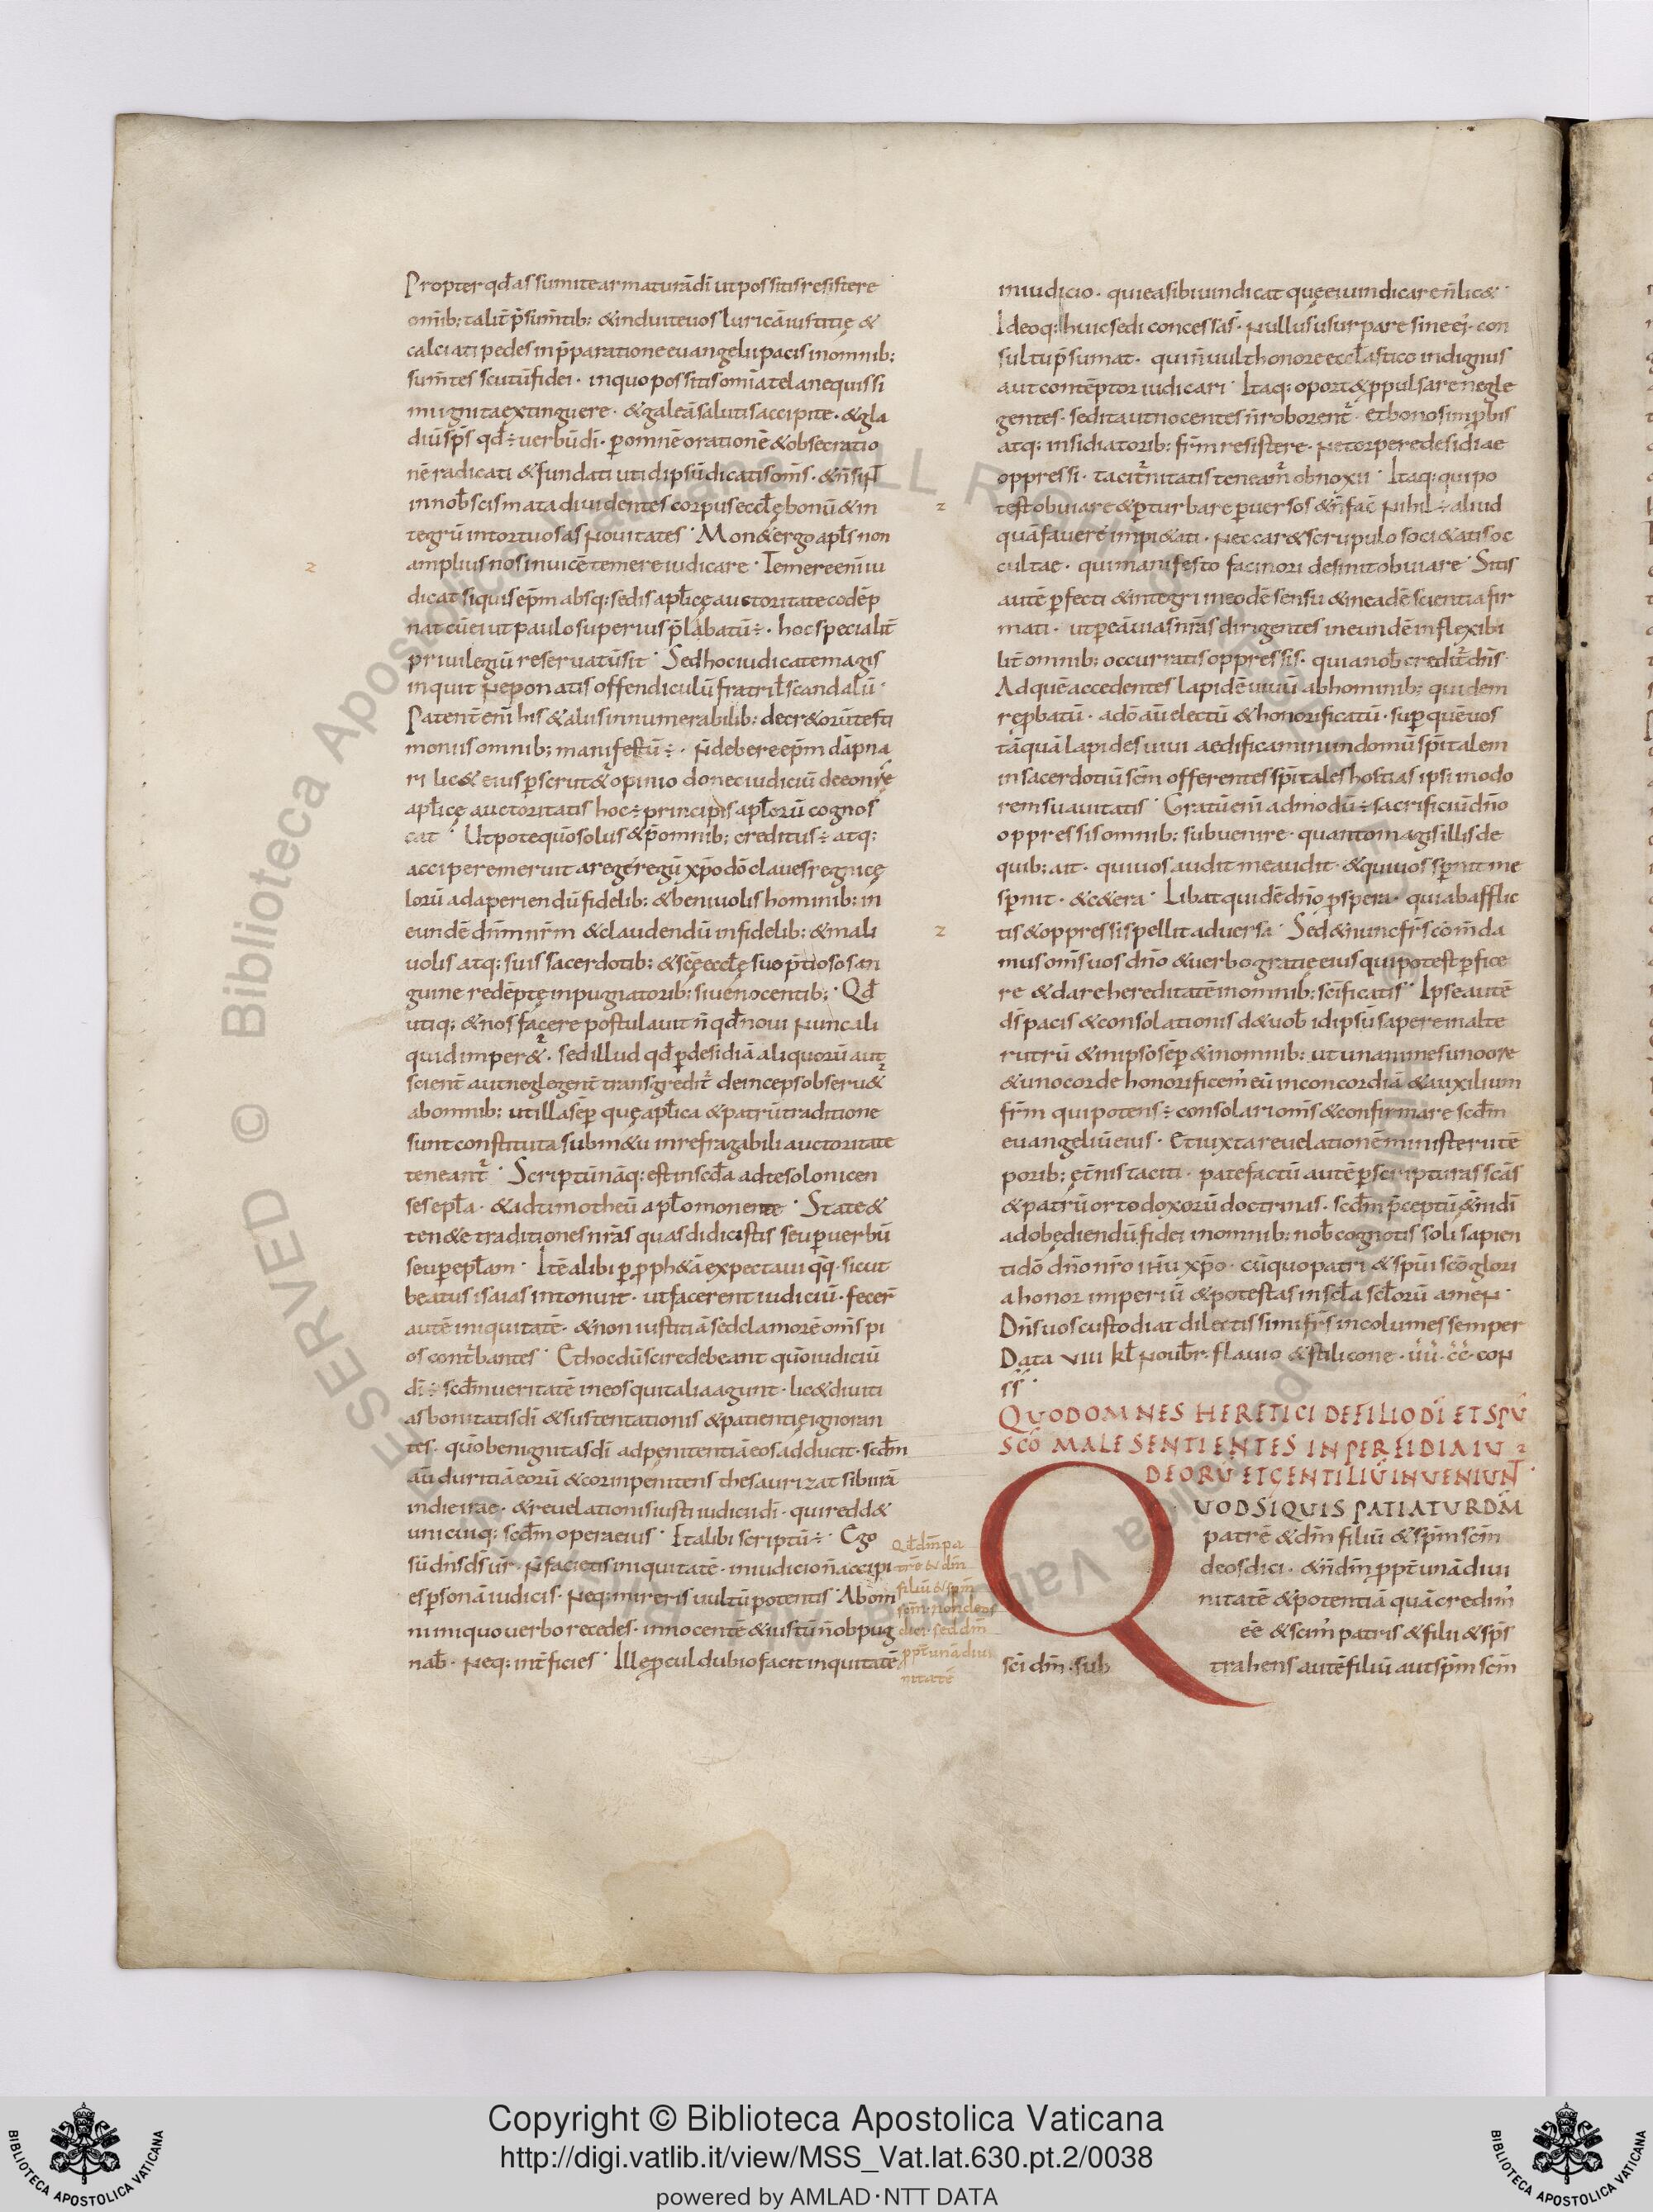 Propter qđ assumite armaturā dī ut possitis resistere
om̄ib; talit̄ p̄sum̄tib; & induite uos luricā iustitię &
calciati pedes in p̄paratione euangelii pacis in omnib;
sum̄tes scutū fidei · in quo possitis om̄ia tela nequissi
mi ignita extinguere · & galeā salutis accipite · & gla
diū sp̄s qđ÷ uerbū dī · p̄ omnē orationē & obsecratio
nē radicati & fundati ut id ipsū dicatis om̄s · & n̄ sint
in nob̄ scismata diuidentes corpus eccl̄ę bonū & in
tegrū in tortuosas nouitates · Mon& ergo apl̄s non
amplius nos inuicē temere iudicare · Temere enī iu
dicat siquis ep̄m absq; sedis apl̄icę auctoritate codēp
nat cū ei ut paulo superius p̄labatū÷ · hoc specialit̄
priuilegiū reseruatū sit · Sed hoc iudicate magis
inquit ne ponatis offendiculū fratri ł scandalū ·
Patent̄ enī his & aliis innumerabilib; decr&orū testi
moniis omnib; manifestū÷ · n̄ debere ep̄m dāpna
ri lic& eius p̄scrut& opinio donec iudiciū de eo nr̄e
apl̄icę auctoritatis hoc÷ principis apl̄orū cognos
cat · Utpote quō solus & p̄ omnib; creditus÷ atq;
accipere meruit a rege regū xp̄o dō claues regni cę
lorū ad aperiendū fidelib; & beniuolis hominib; in
eundē dn̄m nr̄m & claudendū infidelib; & mali
uolis atq; suis sacerdotib; & scę eccl̄ę suo p̄tioso san
guine redēptę inpugnatorib; siue nocentib; · Qđ
utiq; & nos facere postulauit n̄ qđ noui nunc ali
quid imper& · sed illud qđ p̄ desidiā aliquorū aut
scient̄ aut neglegent̄ transgredit̄ deinceps obseru&
ab omnib; ut illa sēp quę apl̄ica & patrū traditione
sunt constituta sub m&u inrefragabili auctoritate
teneant̄ · Scriptū nāq; est in scđa ad tesolonicen
ses epl̄a · & ad timotheū apl̄o monente · State &
ten&e traditiones nr̄as quas didicistis seu p̄ uerbū
seu p̄ epl̄am · Itē alibi p̄ p̄ph&ā expectaui q̄q · sicut
beatus isaias intonuit · ut facerent iudiciū · fecer̄
autē iniquitatē · & non iustitiā sed clamorē om̄s pi
os cont̄bantes · Et hoc dū scire debeant quō iudiciū
dī÷ scđm ueritatē in eos qui talia agunt · lic& diuiti
as bonitatis dī & sustentationis & patientię ignoran
tes · quō benignitas dī ad penitentiā eos adducit · scđm
aū duritiā eorū & cor inpenitens thesaurizat sibi irā
in die irae · & reuelationis iusti iudicii dī · qui redd&
unicuiq; scđm opera eius · Et alibi scriptū÷ · Ego
sū dn̄s ds̄ ur̄ · n̄ facietis iniquitatē · in iudicio n̄ accipi
es p̄sonā iudicis · neq; mireris uultū potentis · Ab om
ni iniquo uerbo recedes · innocentē & iustū n̄ obpug
nab̄ · neq; int̄ficies · Ille p̄cul dubio facit inquitatē
Qđ dm̄ pa
trē & dm̄
filiū & sp̄m
scm̄ · non deos
dici · sed dm̄
pp̄t unā diui
nitatē
in iudicio · qui ea sibi uindicat quę ei uindicare n̄ lic& ·
Ideoq; huic sedi concessas̄ · nullus usurpare sine ei; con
sultu p̄sumat · qui n̄ uult honore eccl̄astico indignus
aut contēptor iudicari · Itaq; oport& p̄pulsare negle
gentes · sed ita ut nocentes n̄ roborent̄ · et bonos inp̄bis
atq; insidiatorib; fr̄m resistere · ne torpere desidiae
oppressi · tacit̄nitatis teneam̄ obnoxii · Itaq; qui po
test obuiare & p̄turbare p̄uersos & n̄ fac̄ nihil÷ aliud
quā fauere impi&ati · nec car& scrupulo soci&atis oc
cultae · qui manifesto facinori desinit obuiare · Sitis
autē p̄fecti & integri in eodē sensu & in eadē scientia fir
mati · ut p̄ eā uias nr̄as dirigentes in eundē inflexibi
lit̄ omnib; occurratis oppressis · quia nob̄ credit̄ dn̄s ·
Ad quē accedentes lapidē uiuū ab hominib; quidem
rep̄batū · a dō aū electū & honorificatū · sup̄ quē uos
tāquā lapides uiui aedificamini in domū sp̄italem
in sacerdotiū scm̄ offerentes sp̄itales hostias ipsi in odo
rem suauitatis · Gratū enī admodū÷ sacrificiū dn̄o
oppressis omnib; subuenire · quanto magis illis de
quib; ait · qui uos audit me audit · & qui uos sp̄nit me
sp̄nit · & c&era · Libat quidē dn̄o p̄spera · qui ab afflic
tis & oppressis pellit aduersa · Sed & nunc fr̄s com̄da
mus om̄s uos dn̄o & uerbo gratię eius qui potest p̄fice
re & dare hereditatē in omnib; scīficatis · Ipse autē
ds̄ pacis & consolationis d& uob̄ id ipsū sapere in alte
rutrū & in ipso sēp & in omnib; ut unanimes uno ore
& uno corde honorificem̄ eū in concordiā & auxilium
fr̄m qui potens÷ consolari om̄s & confirmare scđm
euangeliū eius · Et iuxta reuelationē ministerii tē
porib; et̄nis taciti · patefactū autē p̄ scripturas scās
& patrū ortodoxorū doctrinas · scđm p̄ceptū &n̄i dī
ad obędiendū fidei in omnib; nob̄ cognotis soli sapien
ti dō dn̄o nr̄o ih̄ū xp̄o · cū quo patri & sp̄ui scō glori
a honor imperiū & potestas in scl̄a scl̄orū ameN ·
Dn̄s uos custodiat dilectissimi fr̄s incolumes semper
Data VIII kl̄ noub̄r · flauio & stilicone · ūū · c̄c̄ · coN
ss ·
QUOD OMNES HERETICI DE FILIO DĪ ET SPŪ
SCŌ MALE SENTIENTES IN PERFIDIA IU
DEORŪ ET GENTILIŪ INVENIUNT ·
QUOD SI QUIS PATIATUR DM̄
patrē & dm̄ filiū & sp̄m scm̄
deos dici · & n̄ dm̄ pp̄t unā diui
nitatē & potentiā quā credim̄
ēē & scim̄ patris & filii & sp̄s
sci dm̄ · sub trahens autē filiū aut sp̄m scm̄
Copyright © Biblioteca Apostolica Vaticana
http://digi.vatlib.it/view/MSS_Vat.lat.630.pt.2/0038
powered by AMLAD·NTT DATA
BIBLIOTECA APOSTOLICA VATICANA
BIBLIOTECA APOSTOLICA VATICANA